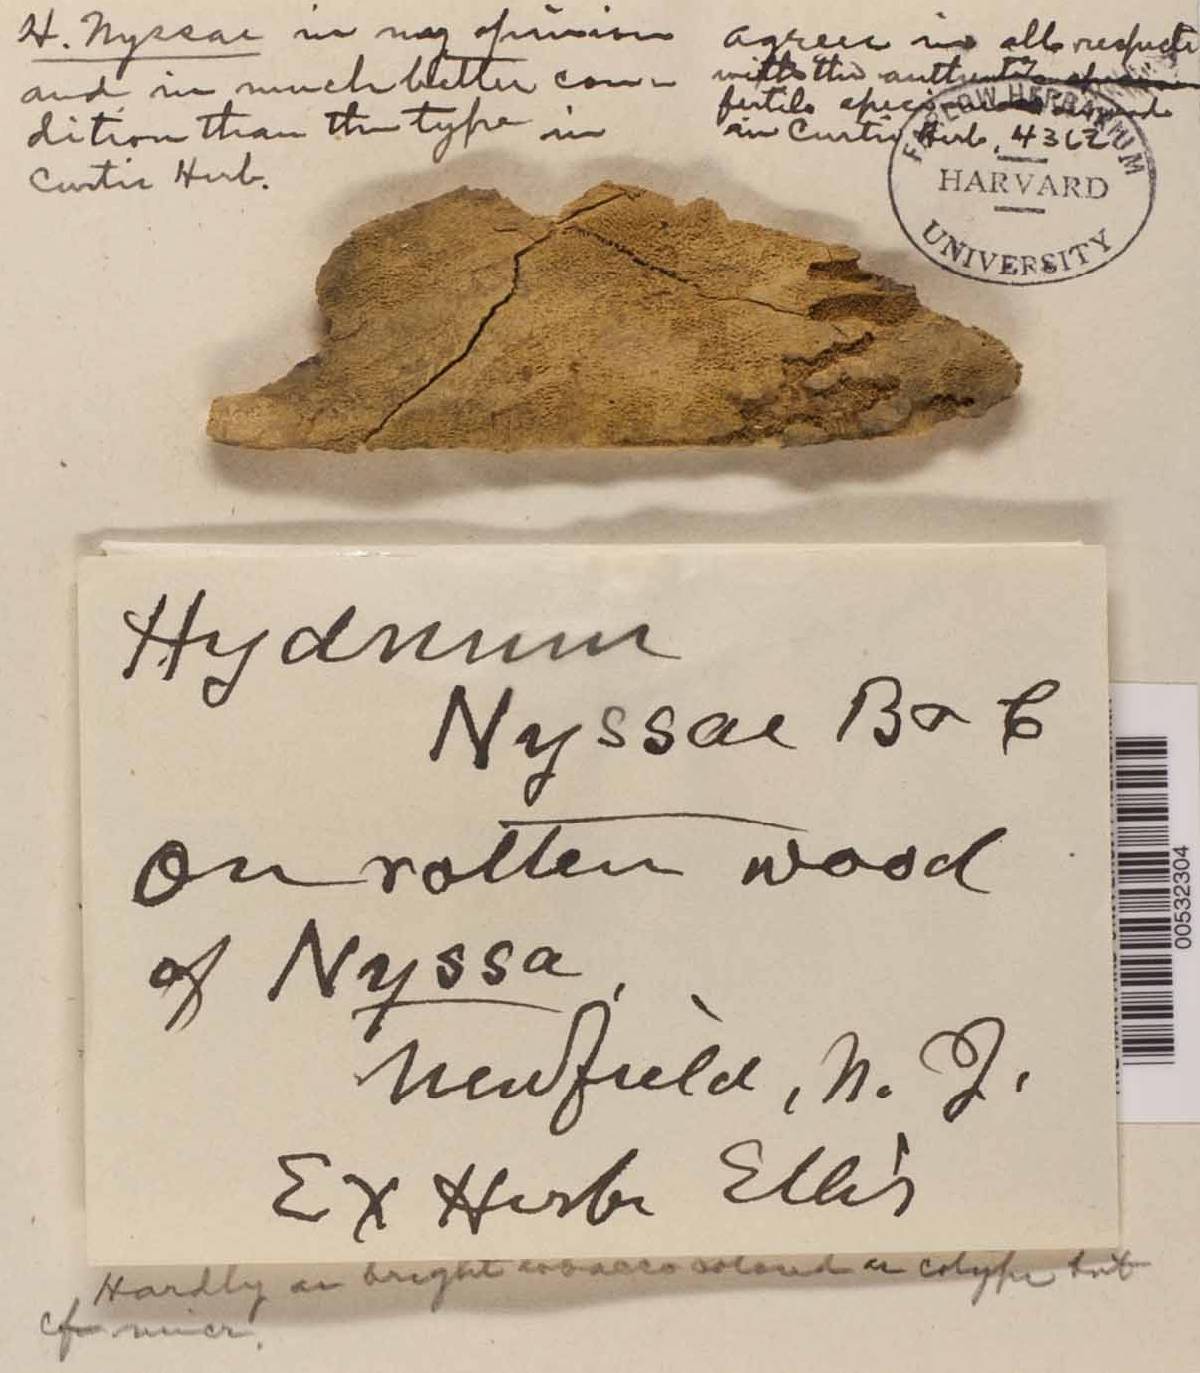 H. Nyssae in my opinion
and in much better con-
dition than the type in
Curtis Herb.
agrees in all respects
with the authentic
fertile
in Curtis Herb. 4362
FARLOW HERBARIUM
HARVARD
UNIVERSITY
Hydnum
Nyssae B & C
On rotten wood
of Nyssa,
Newfield, N. J.
Ex Herb. Ellis
00532304
Hardly as bright tobacco colored as cotype but
cf. micr.